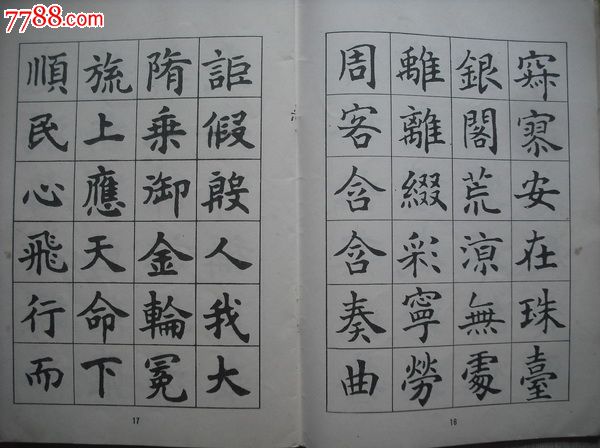 7788.com
寂寥安在珠臺
銀閣荒涼無處
離離綴彩寧勞
周客含含奏曲
16
詎假殷人我大
隋乘御金輪冕
旒上應天命下
順民心飛行而
17